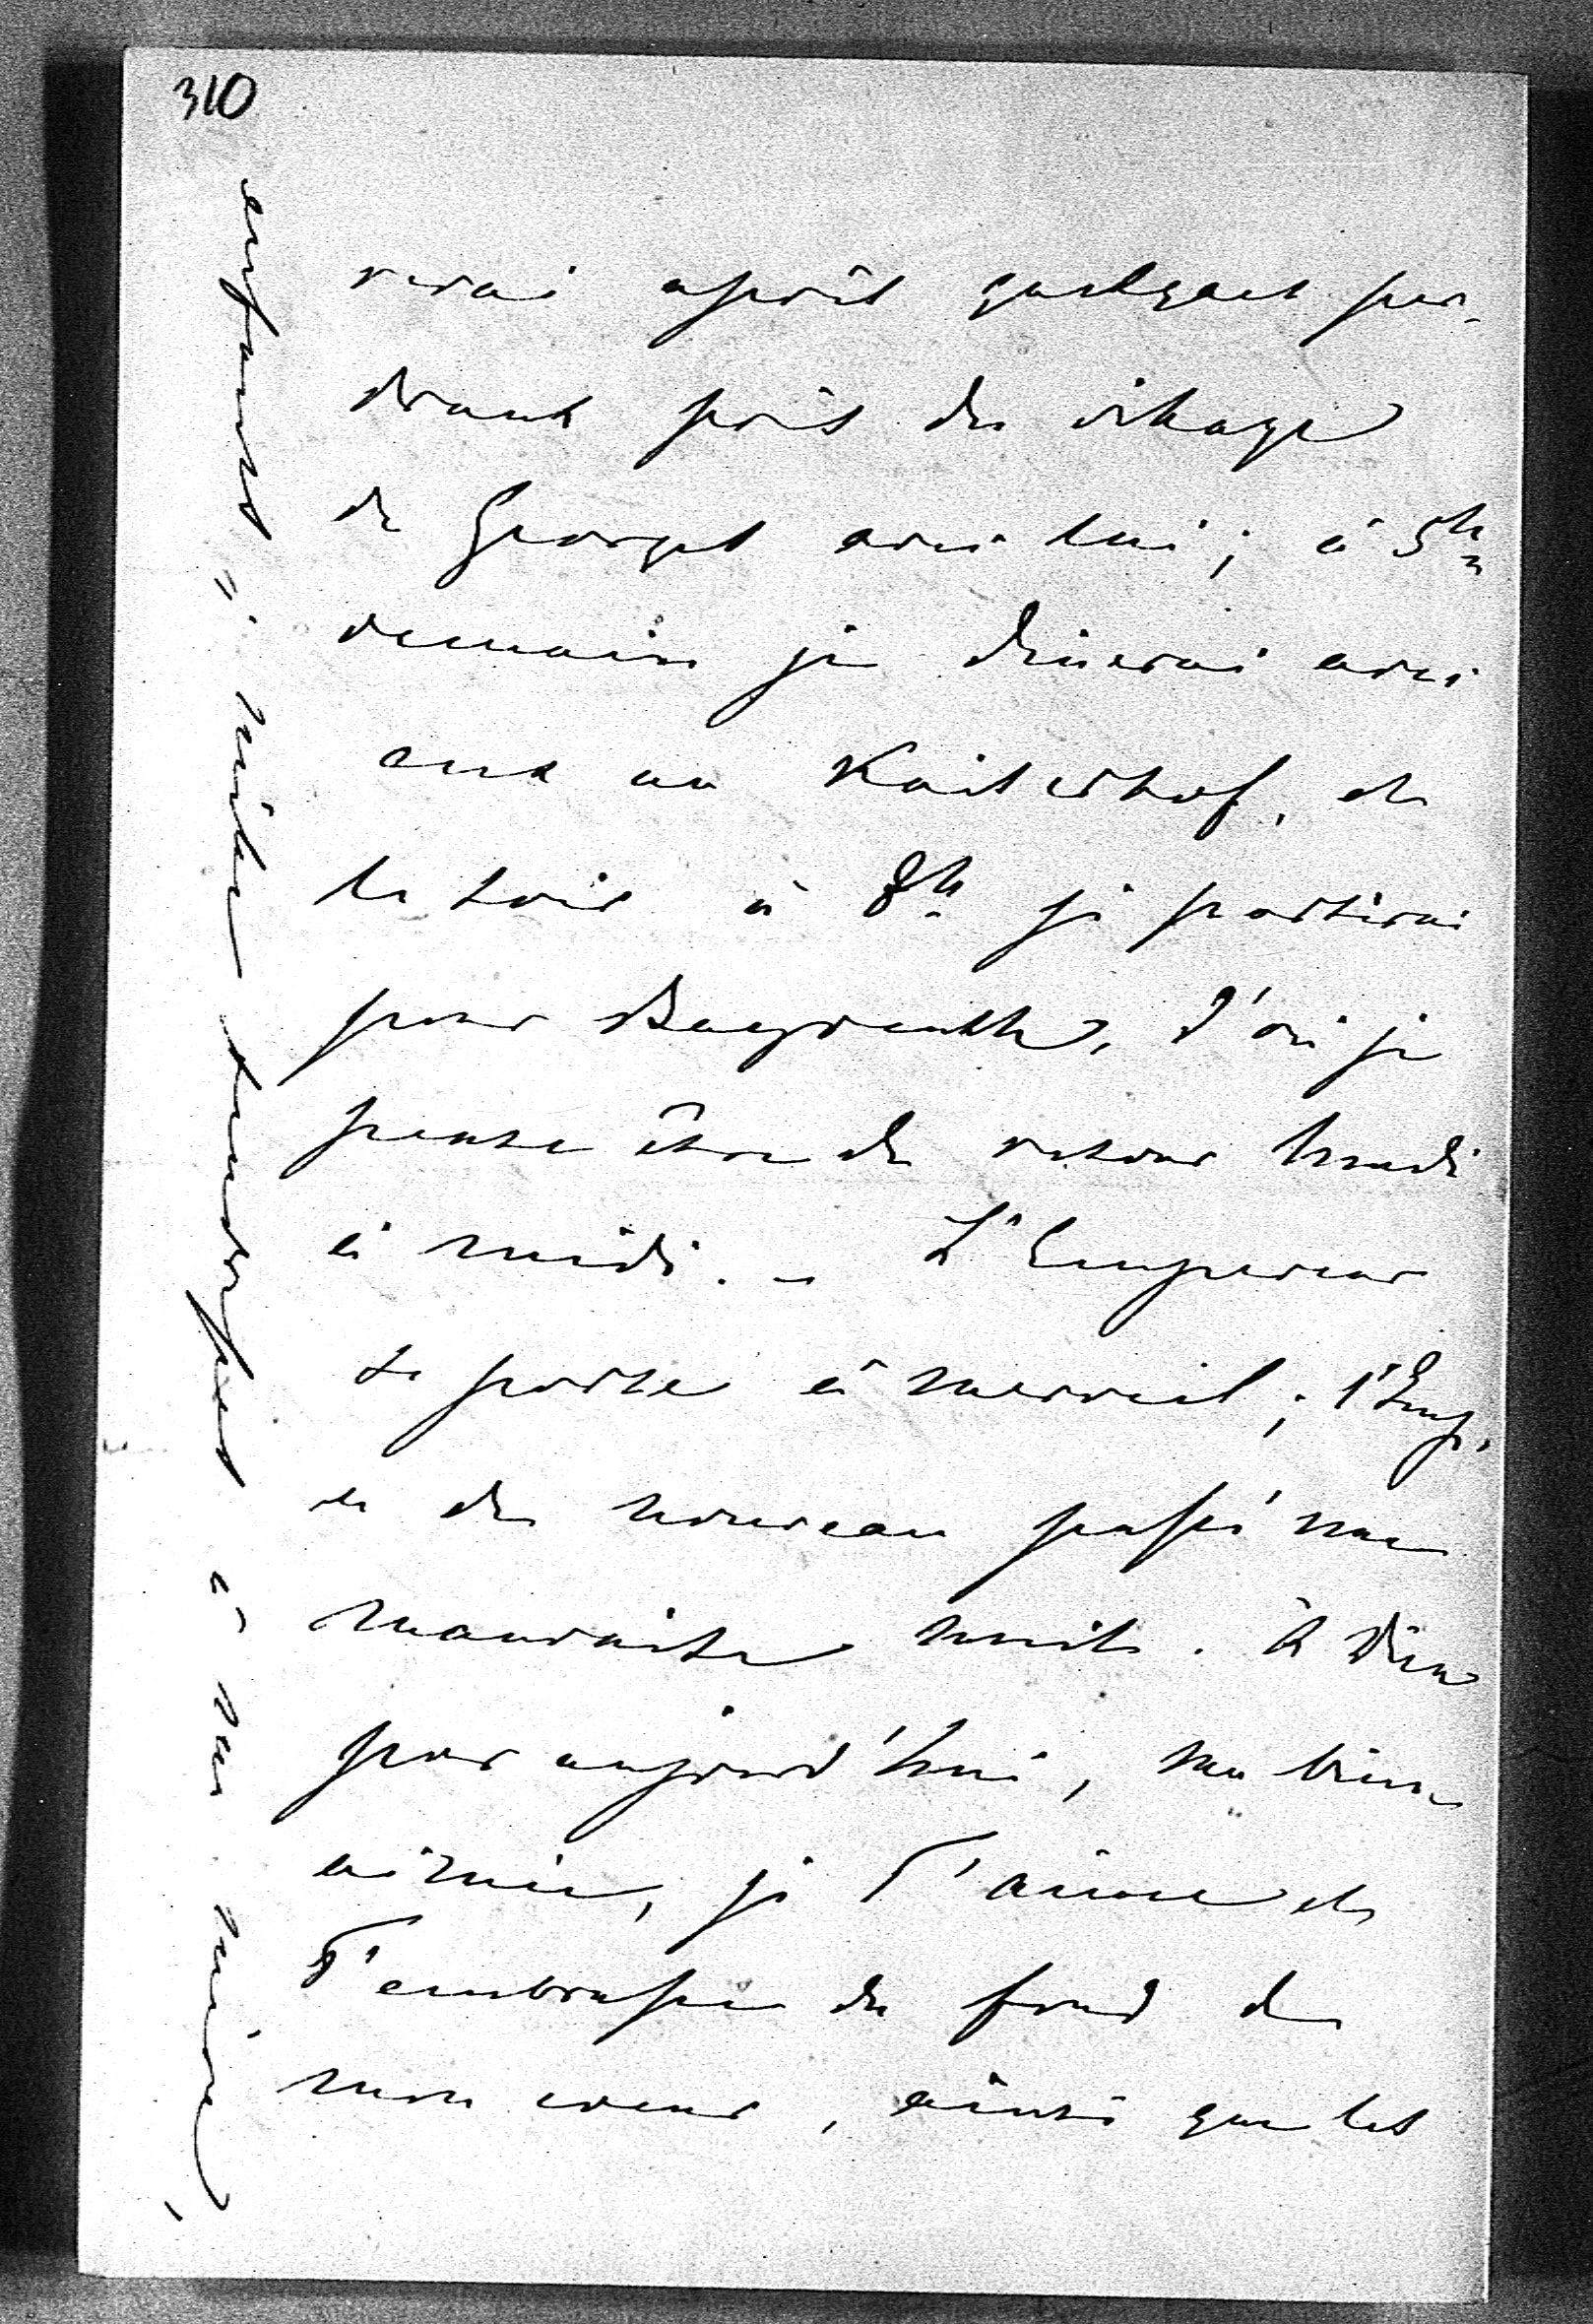 310
rerai après quelques per-
dreaux près du village
de Georges avec lui; à 5h
demain je dinerai avec
eux au Kaiserhof, et
le soir à 8h je partirai
pour Bayreuth, d'où je
pense être de retour lundi
à midi. – L'Empereur
se porte à merveil; l'Imp.
a de nouveau passé une
mauvaise nuit. À Dieu
pour aujourd'hui, ma bien
aimée, je T'aime et
T'embrasse du fond de
mon coeur, ainsi que les
enfants". mille tendresses à ma mère,